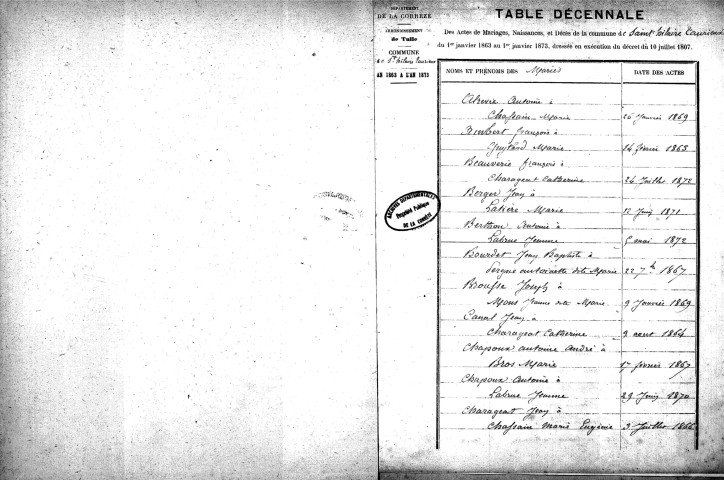 DÉPARTEMENT
DE LA CORRÈZE
ARRONDISSEMENT
de Tulle
COMMUNE
de St hilaire taurieux
AN 1863 A L'AN 1873
TABLE DÉCENNALE
Des Actes de Mariages, Naissances, et Décès de la commune de Saint hilaire taurieux
du 1er janvier 1863 au 1er janvier 1873, dressée en exécution du décret du 10 juillet 1807.
NOMS ET PRÉNOMS DES Mariés
DATE DES ACTES
Antoine à
Chassain Marie 26 Janvier 1869
françois à
Marie 14 février 1863
Beauverie françois à
Charageat Catherine 24 Juillet 1872
Berger Jean à
Marie 12 Juin 1871
Berthou Antoine à
Labrue Jeanne 5 mai 1872
Bourdet Jean Baptiste à
Vergne antoinette dite Marie 22 7bre 1867
Brousse Joseph à
Mons Jeanne dite Marie 9 Janvier 1869
Canart Jean à
Charageat Catherine 9 aout 1864
Chapoux antoine andré à
Bros Marie 17 février 1867
Chapoux Antoine à
Labrue Jeanne 29 Juin 1870
Charageat Jean à
Chassain Marie Eugénie 3 Juillet 1866
ARCHIVES DÉPARTEMENTALES
Propriété Publique
DE LA CORRÈZE